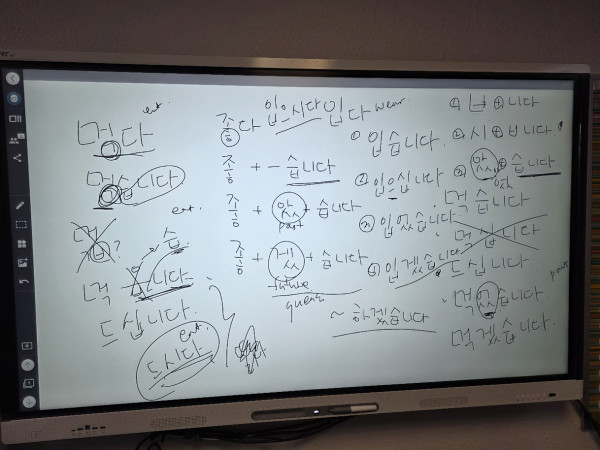 먹다 eat.
먹습니다
먹 + 습
드십니다.
드시다 eat.
좋다
좋 + - 습니다
좋 + 았 + 습니다
past
좋 + 겠 + 습니다
future
guess
~ 하겠습니다
입으시다 입다 wear
① 입습니다.
② 입으십니다
③ 입었습니다.
④ 입겠습니다
① ㅂ + 니다
② 시 + ㅂ니다
③ 았 + 습니다.
었
먹습니다
먹십니다
드십니다
먹었습니다 past
먹겠습니다.